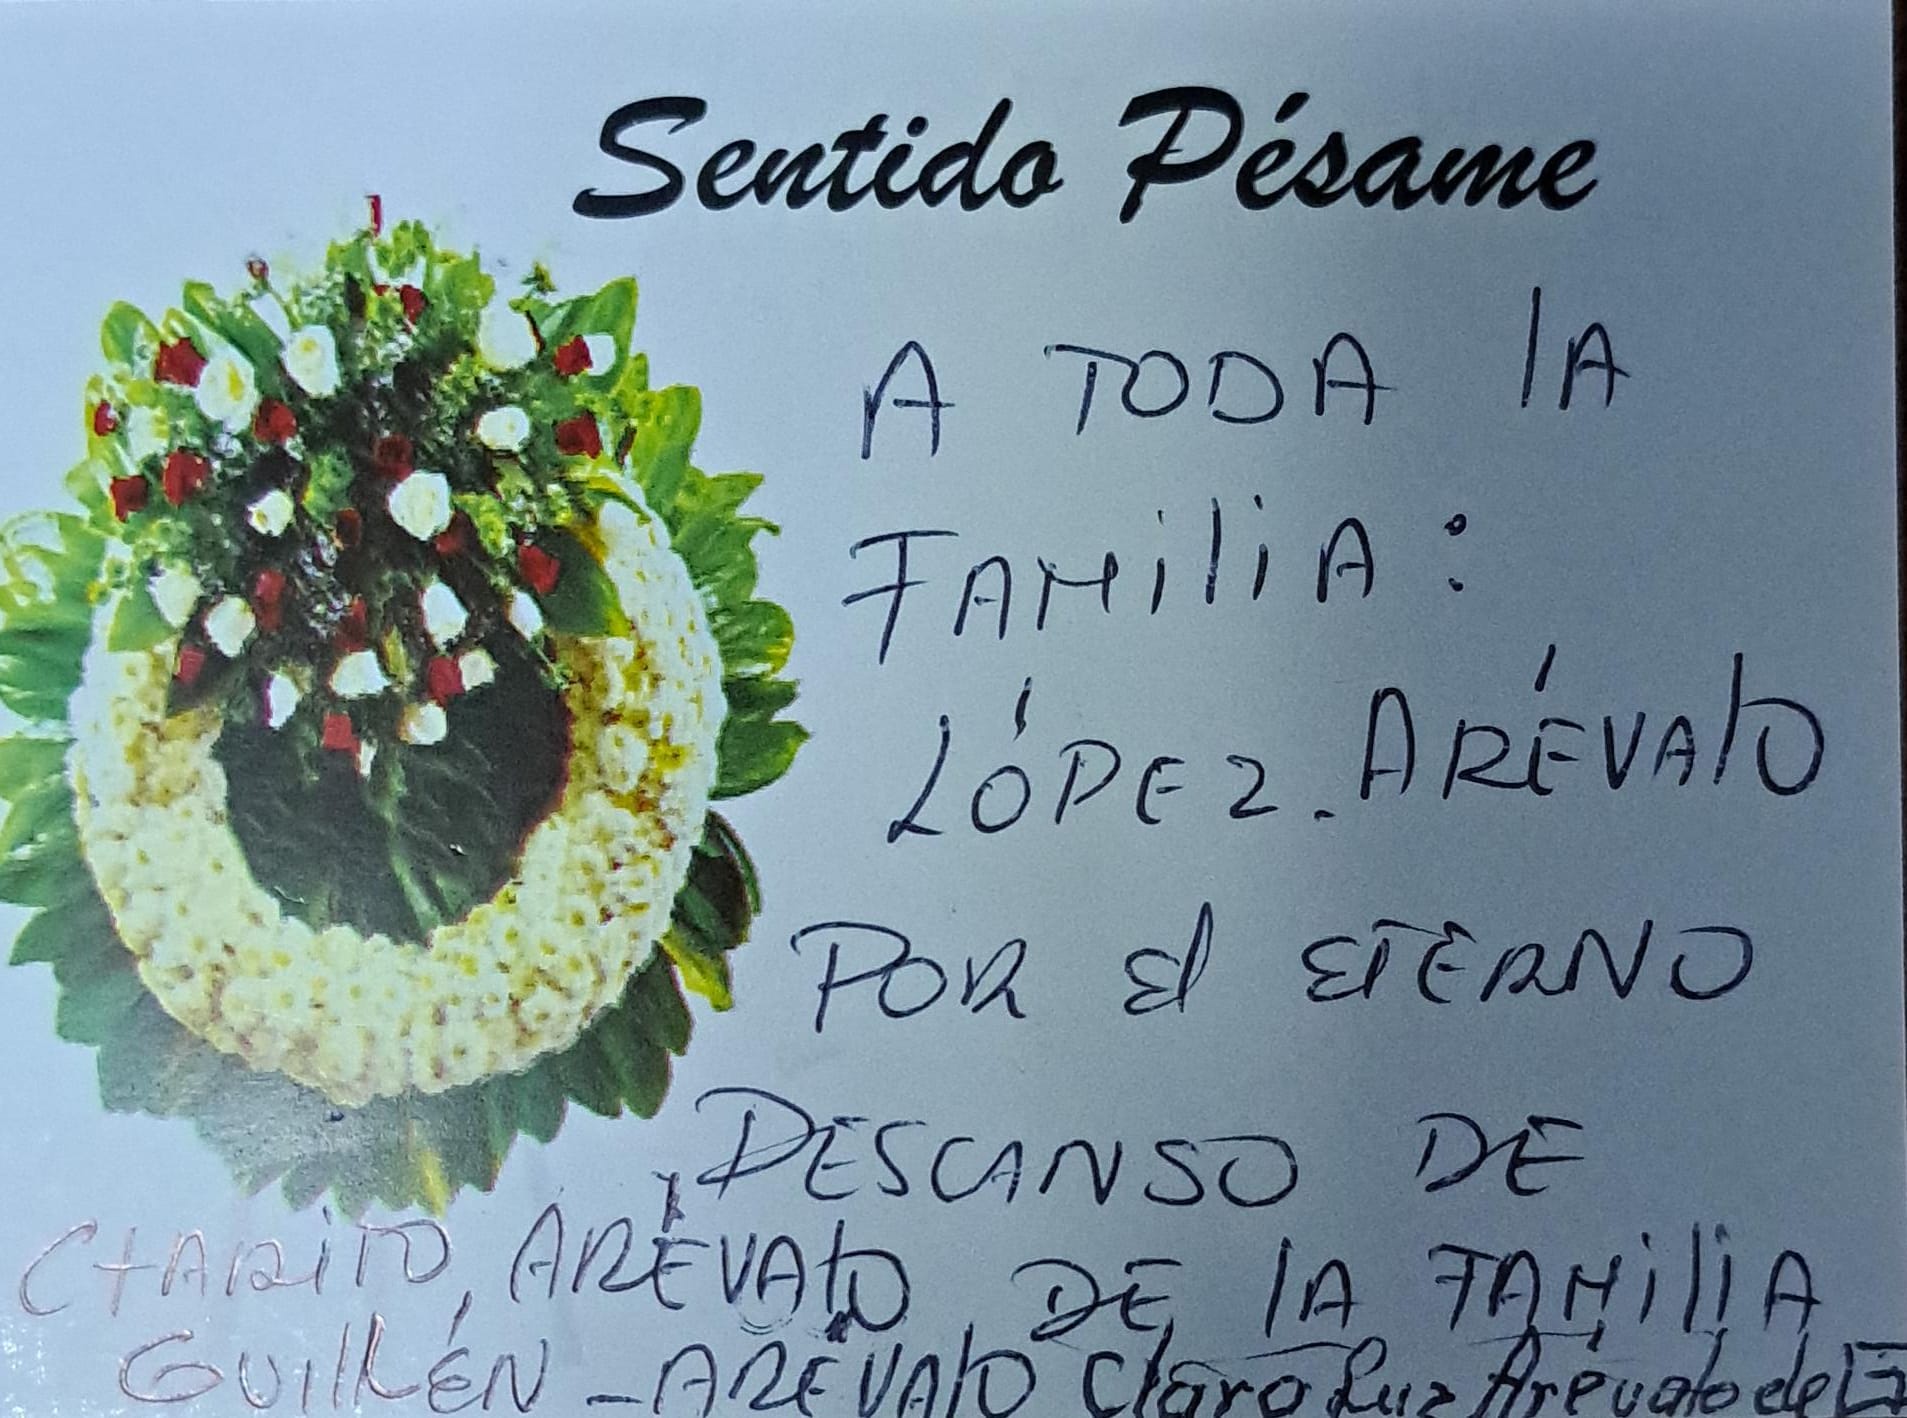 Sentido Pésame
A TODA lA
FAMiliA:
LÓPEZ. ARÉVAlO
POR El ETERNO
DESCANSO DE
CHARiTO, ARÉVAlO DE lA FAMiliA
GUillÉN - ARÉVAlO Clara Luz Arévalo de